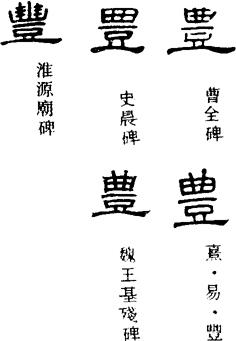 豊
曹全碑
豊
史晨碑
豐
淮源廟碑
豊
熹・易・豐
豊
魏王基殘碑